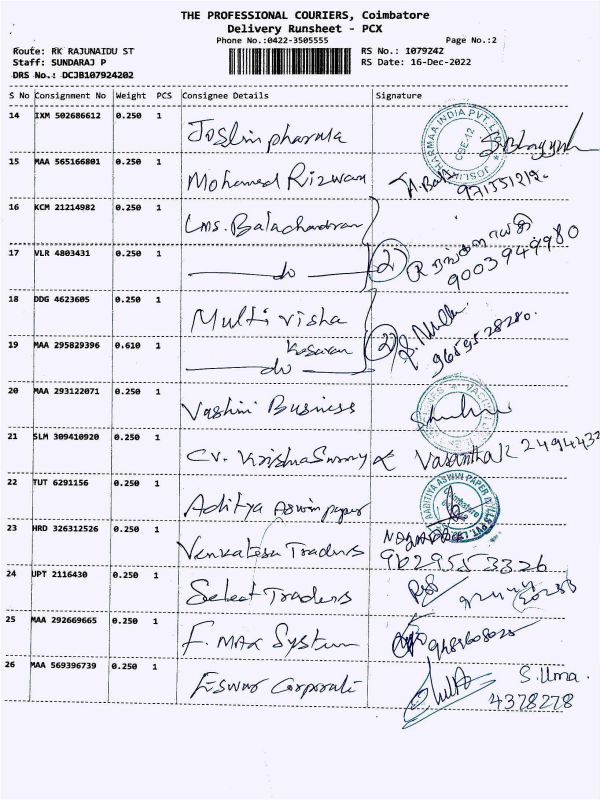 THE PROFESSIONAL COURIERS, Coimbatore
Delivery Runsheet - PCX
Phone No.:0422-3505555 Page No.:2
Route: RK RAJUNAIDU ST RS No.: 1079242
Staff: SUNDARAJ P RS Date: 16-Dec-2022
DRS No.: DCJB107924202
S No Consignment No Weight PCS Consignee Details Signature
14 IXM 502686612 0.250 1 Joslin pharma
15 MAA 565166801 0.250 1 Mohamed Rizwan
16 KCM 21214982 0.250 1 Lms. Balachandran
17 VLR 4803431 0.250 1 do 2 9003949980
18 DDG 4623605 0.250 1 Multi Visha
Kesavan
19 MAA 295829396 0.610 1 do 2 9659528280.
20 MAA 293122071 0.250 1 Vashini Business
21 SLM 309410920 0.250 1 CV. KrishnaSamy & Vasantha K 2494432
22 TUT 6291156 0.250 1 Aditya Aswin paper
23 HRD 326312526 0.250 1 Venkatesa Traders
24 UPT 2116430 0.250 1 Select Traders
25 MAA 292669665 0.250 1 F. MAX System
26 MAA 569396739 0.250 1 Eswar Corporati S. Uma.
4378278